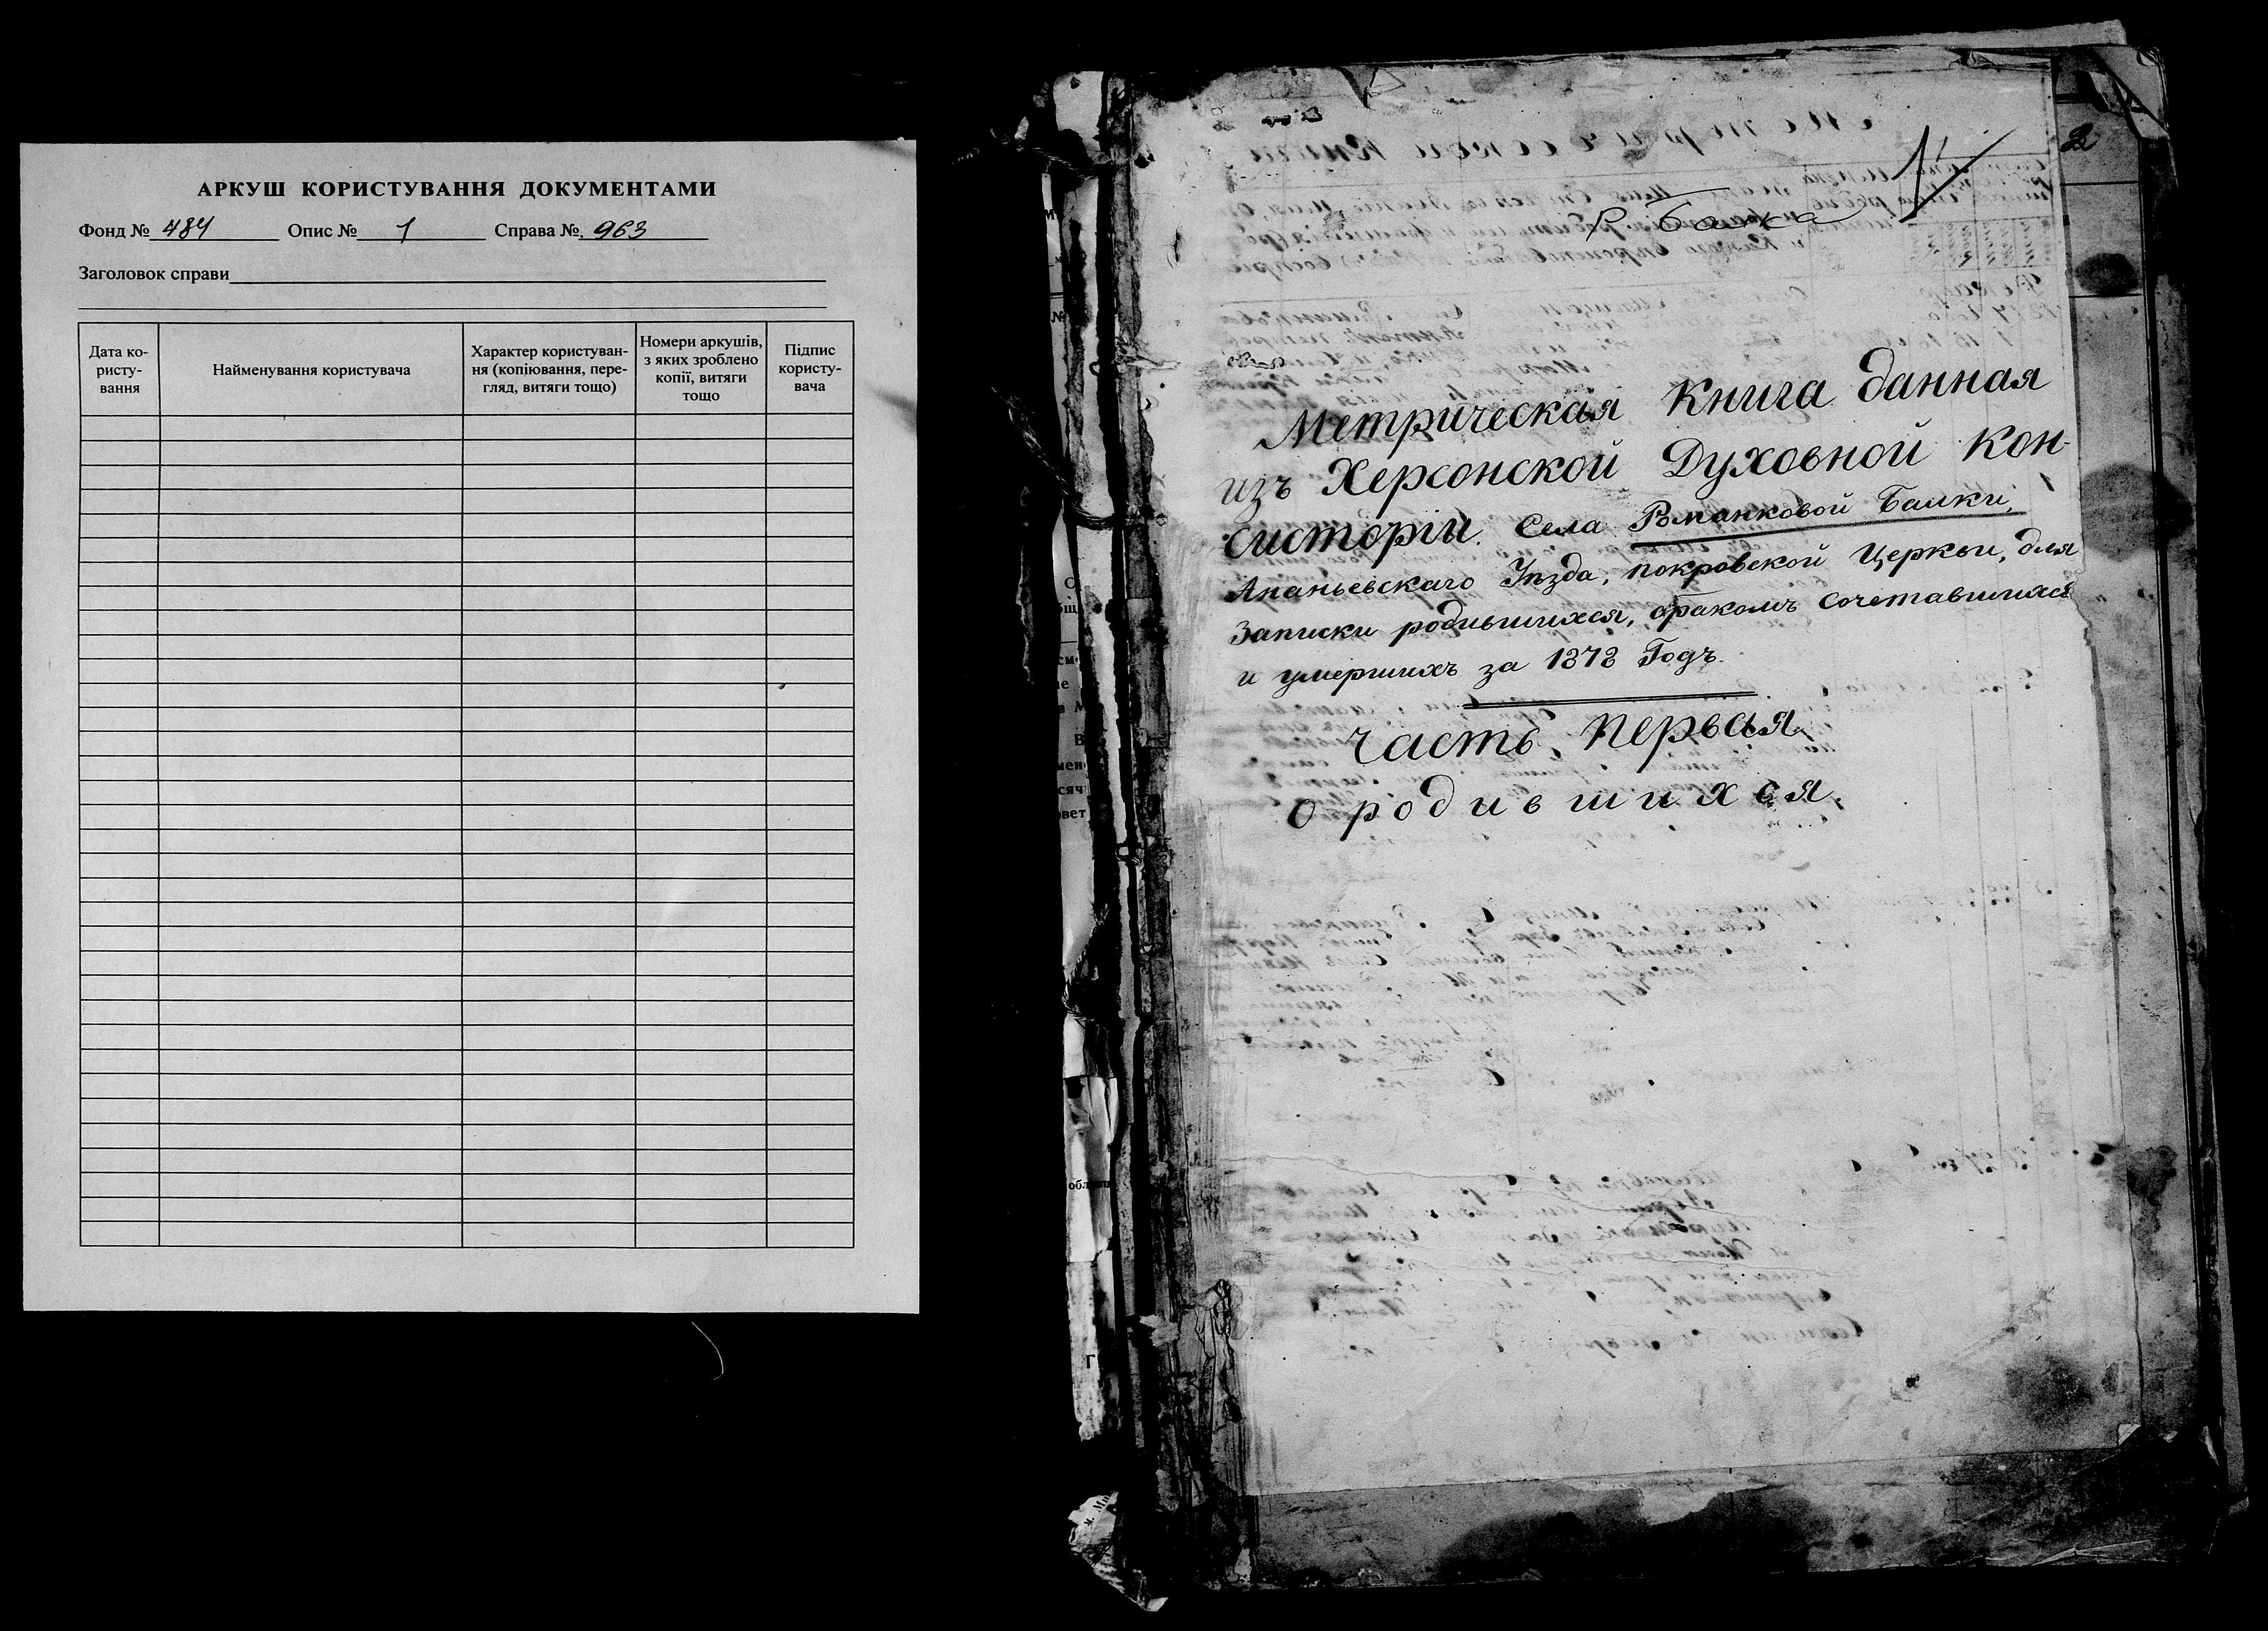 АРКУШ КОРИСТУВАННЯ ДОКУМЕНТАМИ
Фонд № 484 Опис № 1 Справа № 963
Заголовок справи
Дата ко-
ристу-
вання
Найменування користувача
Характер користуван-
ня (копіювання, пере-
гляд, витяги тощо)
Номери аркушів,
з яких зроблено
копії, витяги
тощо
Підпис
користу-
вача
2
Р. Балка
Метрическая Книга данная
изъ Херсонской Духовной Кон-
систоріи Села Романковой Балки,
Ананьевскаго Уѣзда, покровской Церкви, для
Записки родившихся, бракомъ сочетавшихся
и умершихъ за 1878 Годъ.
Часть Первая
о родившихся.